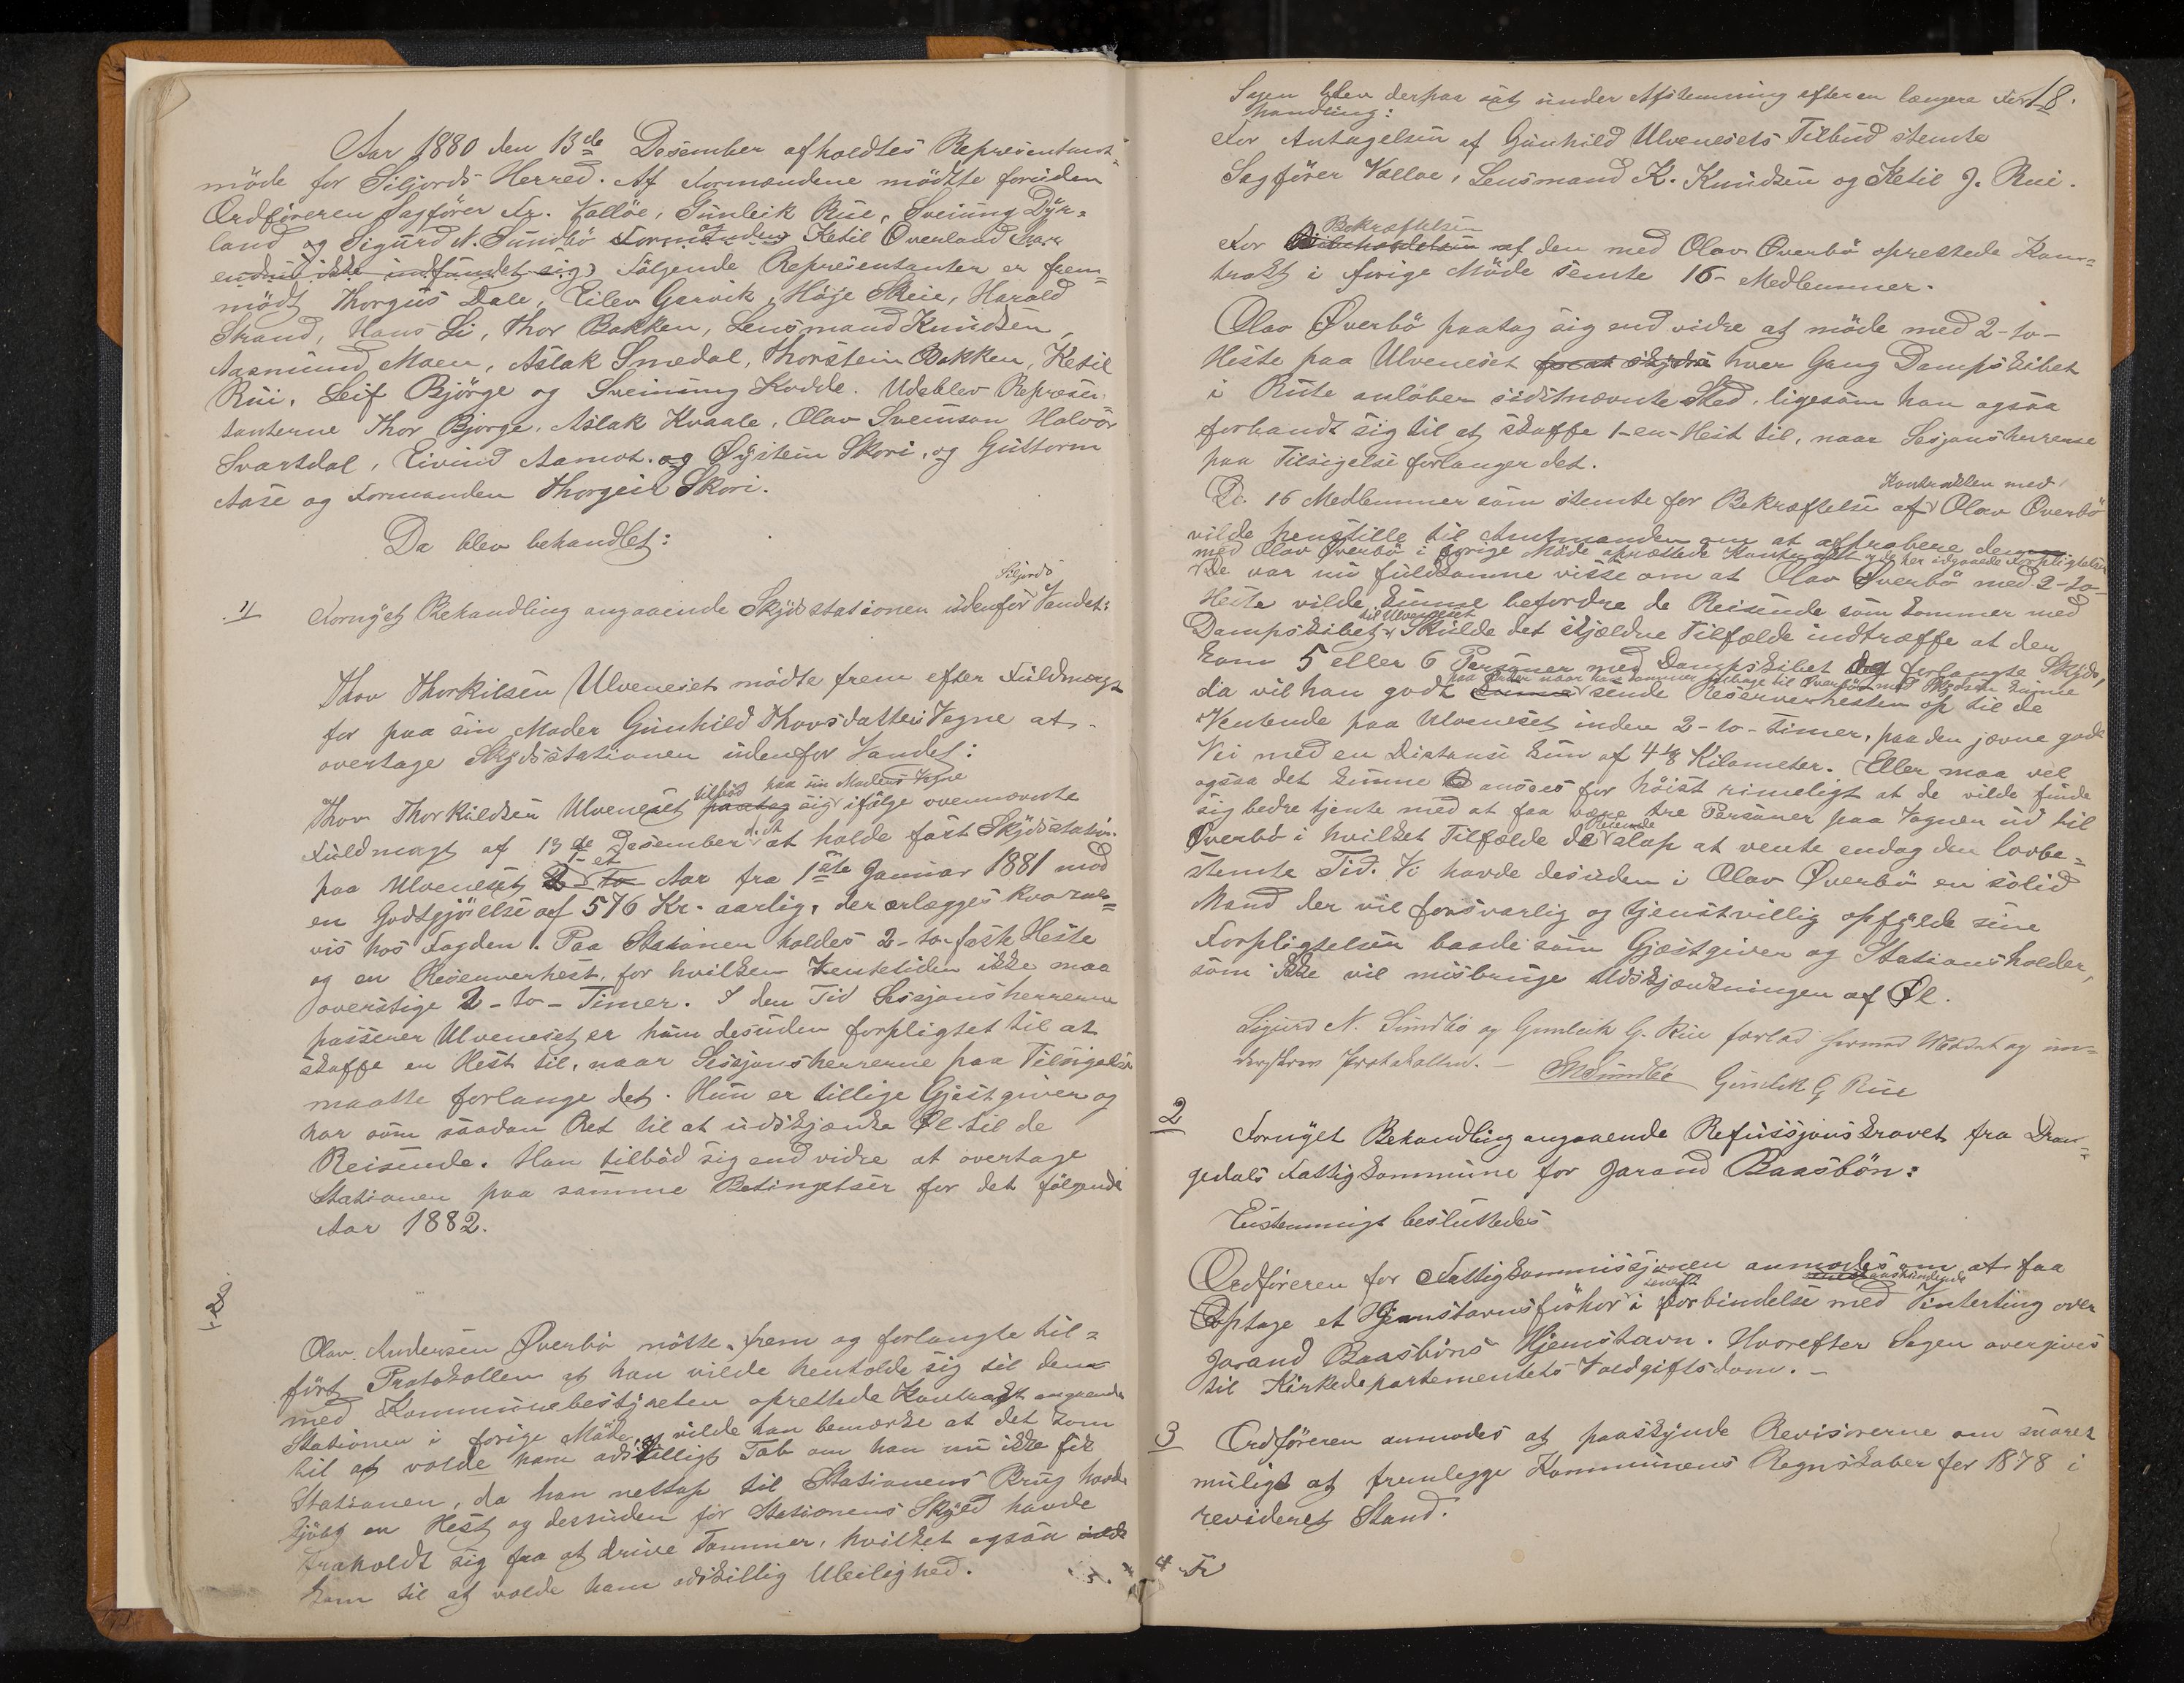 Aar 1880 den 13de Desember afholdtes Representant-
møde for Siljords Herred. Af Formændene mødtte foruden
Ordføreren Sagfører Fr. Valløe, Gunleik Rue, Sveinung Dyr-
land og Sigurd N. Sundbø Formanden Ketil Overland har
endnu ikke indfundet sig) Følgende Representanter er frem-
mødt Thorgus Dale, Eilev Garvik, Høje Skeie, Harald
Strand, Hans Li, Thor Bakken, Lensmand Knudsen,
Aasmund Moen, Aslak Smedal, Thorstein Bakken, Ketil
Rui, Leif Bjørge og Sveinung Kodde. Udeblev Represen-
tanterne Thor Bjørge, Aslak Kvaale, Olav Svenson Halvor
Svartdal, Eivind Aamot og Øystein Skori, og Guttorm
Aase og Formanden Thorgeir Skori.
Da blev behandlet:
1/ Fornyet Behandling angaaende Skydsstationen udenfor Siljords Vandet:
Thov Thorkilsen Ulveneset mødte frem efter Fuldmagt
for paa sin Moder Gunhild Thovsdatters Vegne at
overtage Skydsstationen udenfor Vandet:
tilbød paa sin Moders Vegne
Thov Thorkildsen Ulveneset paatog sig ifølge ovennævnte
Fuldmagt af 13de Desember d. A. at holde fast Skydsstation
1- et
paa Ulveneset 2 to Aar fra 1ste Januar 1881 mod
en Godtgjørelse af 576 Kr. aarlig, der erlægges kvartal-
vis hos Fogden. Paa Stationen holdes 2-to-faste Heste
og en Reserverhest, for hvilken Ventetiden ikke maa
overstige 2-to-Timer. I den Tid Sessjonsherrerne
passerer Ulveneset er hun desuden forpligtet til at
skaffe en Hest til, naar Sessjonsherrerne paa Tilsigelse
maatte forlange det. Hun er tillige Gjestgiver og
har som saadan Ret til at udskjænke Øl til de
Reisende. Han tilbød sig end vidre at overtage
Stationen paa samme Betingelser for det følgende
Aar 1882.
Olav Andersen Øverbø møtte frem og forlangte til-
ført Protokollen at han vilde henholde sig til den
med Kommunebestyreten oprettede Kontrakt angaaende
Stationen i forige Møde, og vilde han bemærke at det kom
til at volde ham adskilligt Tab om han nu ikke fik
Stationen, da han nettop til Stationens Brug havde
kjøbt en Hest og dessuden for Stationens Skyld havde
fraholdt sig fra at drive Tømmer, hvilket ogsaa vilde
kom til at volde ham adskillig Uleilighed.
18.
Sagen blev derpaa sat under Afstemning efter en længere For-
handling:
For Antagelsen af Gunhild Ulvenesets Tilbud stemte
Sagfører Valløe, Lensmand K. Knudsen og Ketil J. Rui.
Bekræftelsen
For af den med Olav Øverbø oprettede Kon-
trakt i forige Møde stemte 16- Medlemmer.
Olav Øverbø paatog sig end vidre at møde med 2-to-
Heste paa Ulveneset for at skydse hver Gang Dampskibet
i Rute anløber sidstnævnte Sted, ligesom han ogsaa
forbandt sig til at skaffe 1-en-Hest til, naar Sesjonsherrerne
paa Tilsigelse forlanger det.
Kontrakten med
De 16 Medlemmer som stemte for Bekræftelse af Olav Øverbø
vilde henstille til Amtmanden om at aprobere den
med Olav Øverbø i forige Møde oprettede Kontrakt og de her indgaaede Forpligtelser
De var nu fuldkomne visse om at Olav Øverbø med 2-to-
Heste vilde kunne befordre de Reisende som kommer med
til Ulveneset
Dampskibet. Skulde det skjældne Tilfælde indtræffe at der
kom 5 eller 6 Personer med Dampskibet og forlangte Skyds,
naar han kommer tilbage til Øverbø med Skydsen kunne
da vil han godt kunne sende Reserverhesten op til de
Ventende paa Ulveneset inden 2-to-timer, paa den jævne gode
Vei med en Distanse kun af 4 1/8 Kilometer. Eller maa vel
ogsaa det kunne ansees for høist rimeligt at de vilde finde
sig bedre tjente med at faa være tre Personer paa Vognen ud til
Reisende
Øverbø i hvilket Tilfælde de slap at vente endog den lovbe-
stemte Tid. Vi havde desuden i Olav Øverbø en solid
Mand der vil forsvarlig og tjenstvillig opfylde sine
Forpligtelser baade som Gjæstgiver og Stationsholder,
som ikke vil misbruge Udskjænkningen af Øl.
Sigurd N. Sundbø og Gunleik G. Rue forlod herved Mødet og un-
derskrev Protokollen. — SNSundbø Gunleik G Rue
2 Fornyet Behandling angaaende Refussjonskravet fra Dran-
gedals Fattigkommune for Jarand Baasbøn:
Enstemmigt besluttedes
Ordføreren for Fattigkommissjonen anmodes om at faa
senest
Optage et Hjemstavnsforhør i Forbindelse med Vinterting over
Jarand Baasbøns Hjemstavn. Hvorefter Sagen overgives
til Kirkedepartementets Voldgiftsdom. —
3 Ordføreren anmodes at paaskynde Revisorerne om snarest
muligt at fremlegge Kommunens Regnskaber for 1878 i
revideret Stand.
4